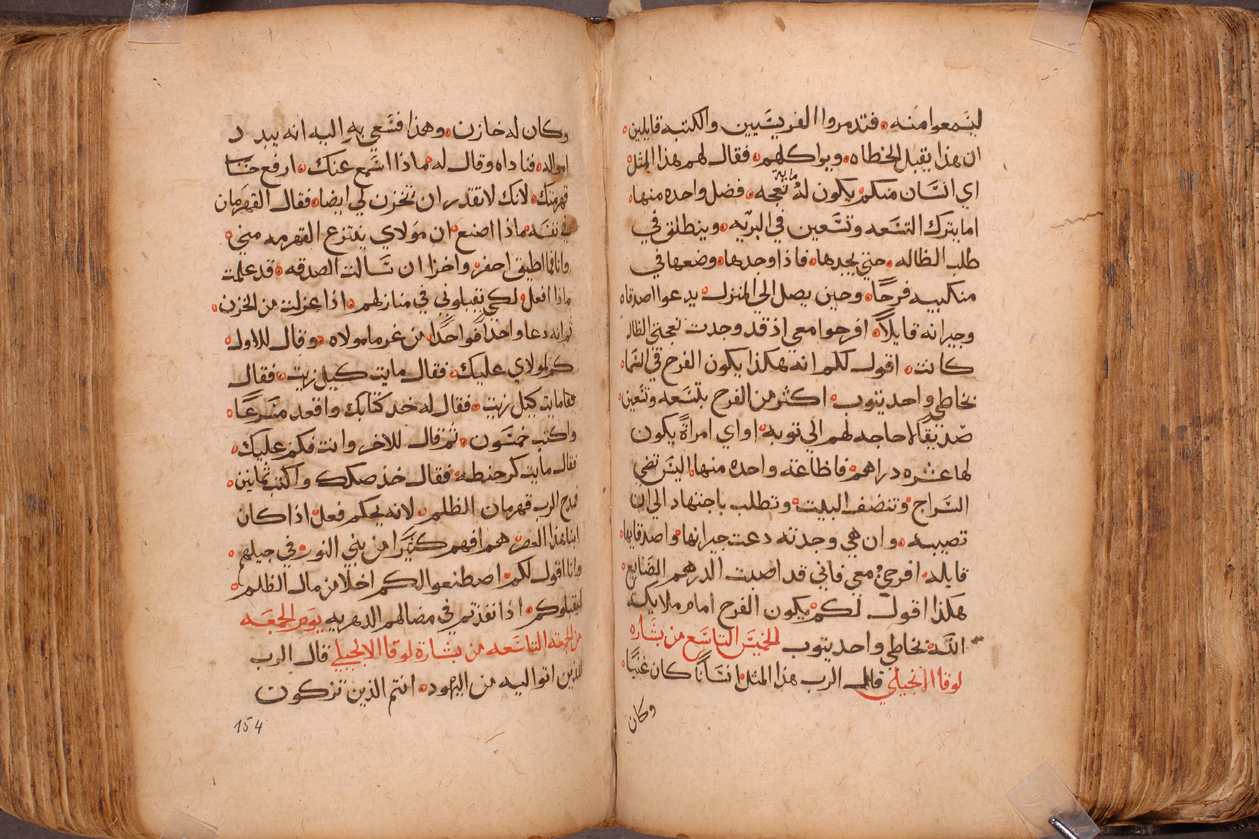 ليسمعوا منه ه فتدمروا الفريسيين والكتبه قايلين ه
ان هذا يقبل الخطاه ه ويواكلهم ه فقال لهم هذا المثل ه
اي انسان منكم يكون له مايه نعجه ه فضل واحده منها ه
اما يترك التسعه وتسعين في البريه ه وينطلق في
طلب الظاله ه حتي يجدها ه فاذا وجدها ه وضعها في
منكبيه فرحًا ه وحين يصل الي المنزل ه يدعوا اصدقاه
وجيرانه قايلاً ه افرحوا معي اذ قد وجدت نعجتي الظاله
كانت ه اقول لكلم انه هكذا يكون الفرح في السما ه
بخاطي واحد يتوب ه اكثر من الفرح بلتسعه وتسعين ه
صديقًا لا حاجه لهم الي توبه ه او اي امراةً يكون
لها عشره دراهم ه فاظاعة واحده منها اليس تضي
السراج ه وتنضف البيت ه وتطلب باجتهاد الي ان
تصيبه ه وان هي وجدته دعت جيرانها ه واصدقايها ه
قايله ه افرحوُ معي فاني قد اصبت الدرهم الضايع ه
هكذا اقول لكم يكون الفرح امام ملايكة
الله ه بخاطي واحد يتوب الخميس التاسع من بشاره
لوقا الانجيلي قال الرب هذا المثل ه انسانًا كان غنيًا ه
وكان
وكان له خازن ه وهذا فسعي به اليه انه يبدد
امواله ه فناداه وقال له ه ماذا اسمع عنك ه ارفع حساب
قهرمتك ه لانك لا تقدر ان تخزن لي ايضا ه فقال القهرمان
في نفسه ه ماذا اصنع ه ان مولاي ينتزع القهرمه مني ه
وانا فما اطيق احفر ه واخزا ان تسالت الصدقه ه قد علمت
ماذا افعل ه لكي يقبلوني في منازلهم ه اذا عزلت من الخزن ه
ثم انه دعا واحدًا فواحدًا من غرما مولاه ه وقال للاول ه
كم لمولاي عليك ه فقال مايت كيل زيت ه فقال
مايت كيل زيت ه فقال له خد كتابك واقعد مسرعًا ه
واكتب خمسون ه ثم قال للاخر وانت فكم عليك ه
فقال مايت كر حنطه ه فقال خذ صكك واكتب ثمانين ه
فمدح الرب قهرمان الظلم ه لانه بحكم فعل ه اذا كان
ابنا هذا العصر ه هم افهم كثيرًا من بني النور ه في جيلهم ه
وانا اقول لكم ه اصطنعوا لكم اخلا من مال الظلم ه
ليقبلوكم ه اذا نفدتم في مضالهم الدهريه يوم الجمعه
من الجمعه التاسعه من بشارة لوقا الانجيلي قال الرب
للذين اتوا اليه من اليهود ه انتم الذين تزكون
154